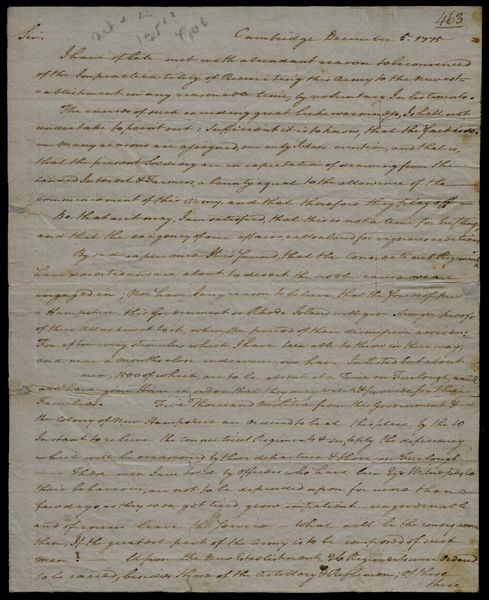 463
Sir,
Cambridge December 5. 1775
I have of late met with abundant reason to be convinced
of the Impracticability of Recruiting this Army to the New est-
ablishment in any reasonable time, by voluntary Inlistments.
The causes of such exceeding great lukewarmness, I shall not
undertake to point out; Sufficient it is to know, that the fact is so
Many reasons are assigned, one only I shall mention, and that is,
that the present Soldiery are in expectation of drawing from the
Landed Interest & Farmers, a bounty equal to the allowance of the
commencement of this Army, and that therefore they play off
Be that as it may, I am satisfied, that this is not a time for
and that the exigency of our affairs, calls aloud for vigorous exertions
By sad experience it is found that the Connecticut Regiments
have deserted and are about to desert the noble cause we are
engaged in; Nor have I any reason to believe, that the Forces of New
Hampshire, this Government or Rhode Island will give Stronger proofs
of their Attachment to it, when the period of their dismission arrives;
For after every stimulus which I have been able to throw in their way,
and near a month's close endeavour, we have Inlisted but about
men, 1500 of which, are to be absent at a Time on Furlough, untill
all have gone Home, in order that they may visit & provide for their
Families. Five Thousand Militia from this Government &
the Colony of New Hampshire are ordered to be at this place, by the 10
Instant to relieve the Connecticut Regiments & supply the deficiency
which will be occasioned by their departure & those on Furlough
These men I'm told by officers who have been Eye Witnesses to
their behaviour, are not to be depended upon for more than a
few days, as they soon get tired, grow impatient ungovernable
and of course leave the Service — What will be the consequence
then, If the greatest part of the Army is to be composed of such
men? Upon the New Establishment, 26 Regiments were ordered
to be raised, besides those of the Artillery & Riflemen, Of these
these